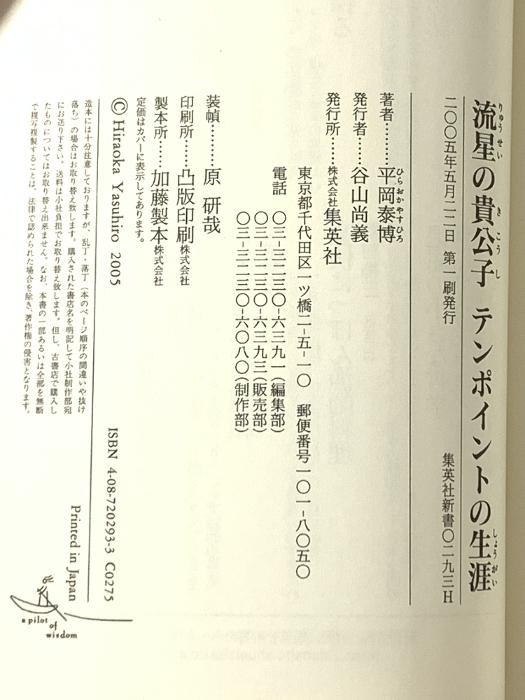 流星の貴公子 テンポイントの生涯
りゅうせい きこうし しょうがい
二〇〇五年五月二二日 第一刷発行
集英社新書〇二九三H
著者………平岡泰博
ひらおかやすひろ
発行者……谷山尚義
発行所……株式会社集英社
東京都千代田区一ツ橋二-五-一〇 郵便番号一〇一-八〇五〇
電話 〇三-三二三〇-六三九一(編集部)
〇三-三二三〇-六三九三(販売部)
〇三-三二三〇-六〇八〇(制作部)
装幀………原 研哉
印刷所……凸版印刷株式会社
製本所……加藤製本株式会社
定価はカバーに表示してあります。
© Hiraoka Yasuhiro 2005
ISBN 4-08-720293-3 C0275
造本には十分注意しておりますが、乱丁・落丁(本のページ順序の間違いや抜け
落ち)の場合はお取り替え致します。購入された書店名を明記して小社制作部宛
にお送り下さい。送料は小社負担でお取り替え致します。但し、古書店で購入し
たものについてはお取り替え出来ません。なお、本書の一部あるいは全部を無断
で複写複製することは、法律で認められた場合を除き、著作権の侵害となります。
Printed in Japan
a pilot
of
wisdom